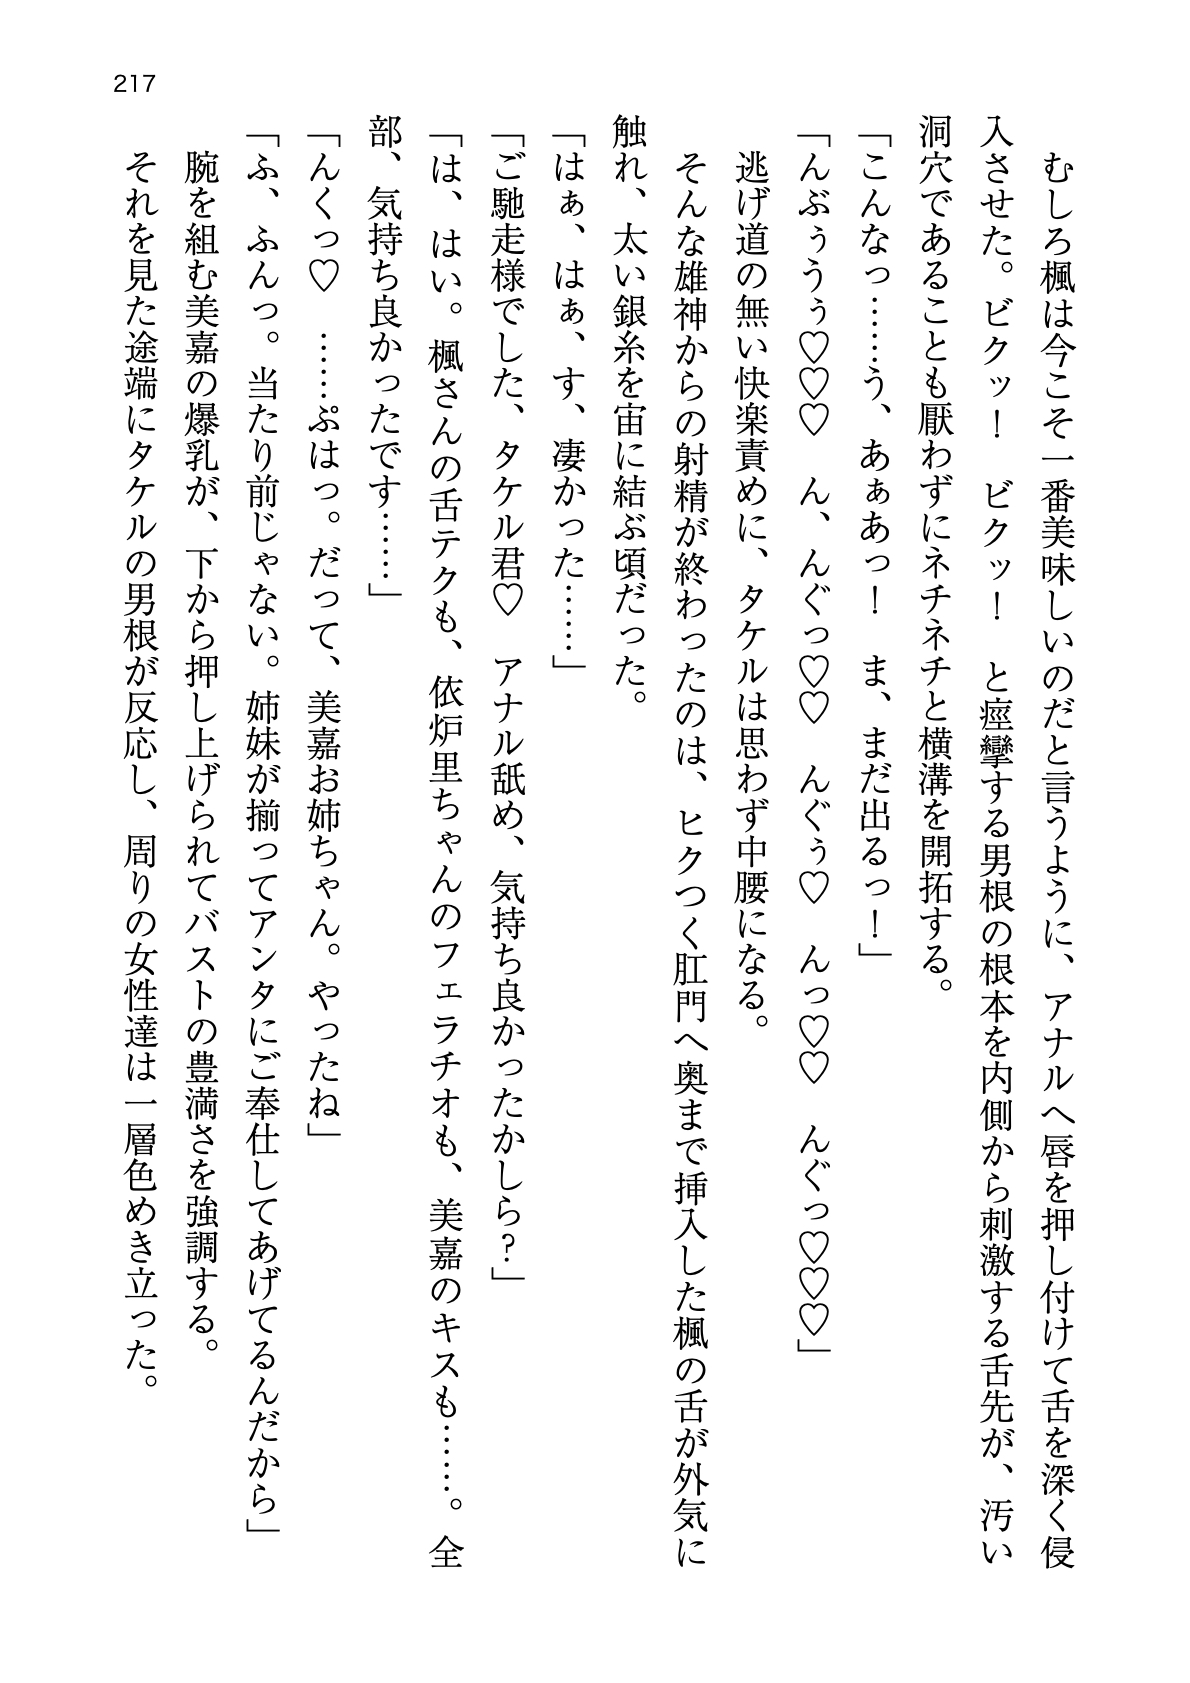 217
むしろ楓は今こそ一番美味しいのだと言うように、アナルへ唇を押し付けて舌を深く侵
入させた。ビクッ！　ビクッ！　と痙攣する男根の根本を内側から刺激する舌先が、汚い
洞穴であることも厭わずにネチネチと横溝を開拓する。
「こんなっ……う、あぁあっ！　ま、まだ出るっ！」
「んぶぅうぅ♡♡♡　ん、んぐっ♡♡　んぐぅ♡　んっ♡♡　んぐっ♡♡♡」
逃げ道の無い快楽責めに、タケルは思わず中腰になる。
そんな雄神からの射精が終わったのは、ヒクつく肛門へ奥まで挿入した楓の舌が外気に
触れ、太い銀糸を宙に結ぶ頃だった。
「はぁ、はぁ、す、凄かった……」
「ご馳走様でした、タケル君♡　アナル舐め、気持ち良かったかしら？」
「は、はい。楓さんの舌テクも、依炉里ちゃんのフェラチオも、美嘉のキスも……。全
部、気持ち良かったです……」
「んくっ♡　……ぷはっ。だって、美嘉お姉ちゃん。やったね」
「ふ、ふんっ。当たり前じゃない。姉妹が揃ってアンタにご奉仕してあげてるんだから」
腕を組む美嘉の爆乳が、下から押し上げられてバストの豊満さを強調する。
それを見た途端にタケルの男根が反応し、周りの女性達は一層色めき立った。